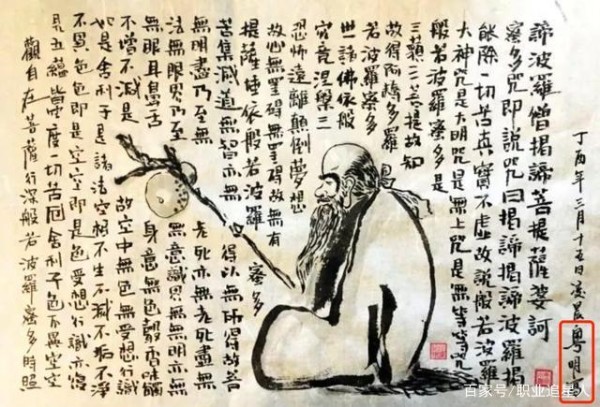 觀自在菩薩行深般若波羅蜜多時照
見五蘊皆空度一切苦厄舍利子色不異空空
不異色色即是空空即是色受想行識亦復
如是舍利子是諸法空相不生不滅不垢不淨
不增不減是故空中無色無受想行識
無眼耳鼻舌身意無色聲香味觸
法無眼界乃至無意識界無無明亦無
無明盡乃至無老死亦無老死盡無
苦集滅道無智亦無得以無所得故菩
提薩埵依般若波羅蜜多
故心無罣礙無罣礙故無有
恐怖遠離顛倒夢想
究竟涅槃三
世諸佛依般
若波羅蜜多
故得阿耨多羅
三藐三菩提故知
般若波羅蜜多是
大神咒是大明咒是無上咒是無等等咒
能除一切苦真實不虛故說般若波羅
蜜多咒即說咒曰揭諦揭諦波羅揭
諦波羅僧揭諦菩提薩婆訶
丁酉年三月十五日凌晨粵明
百家号/职业追星人